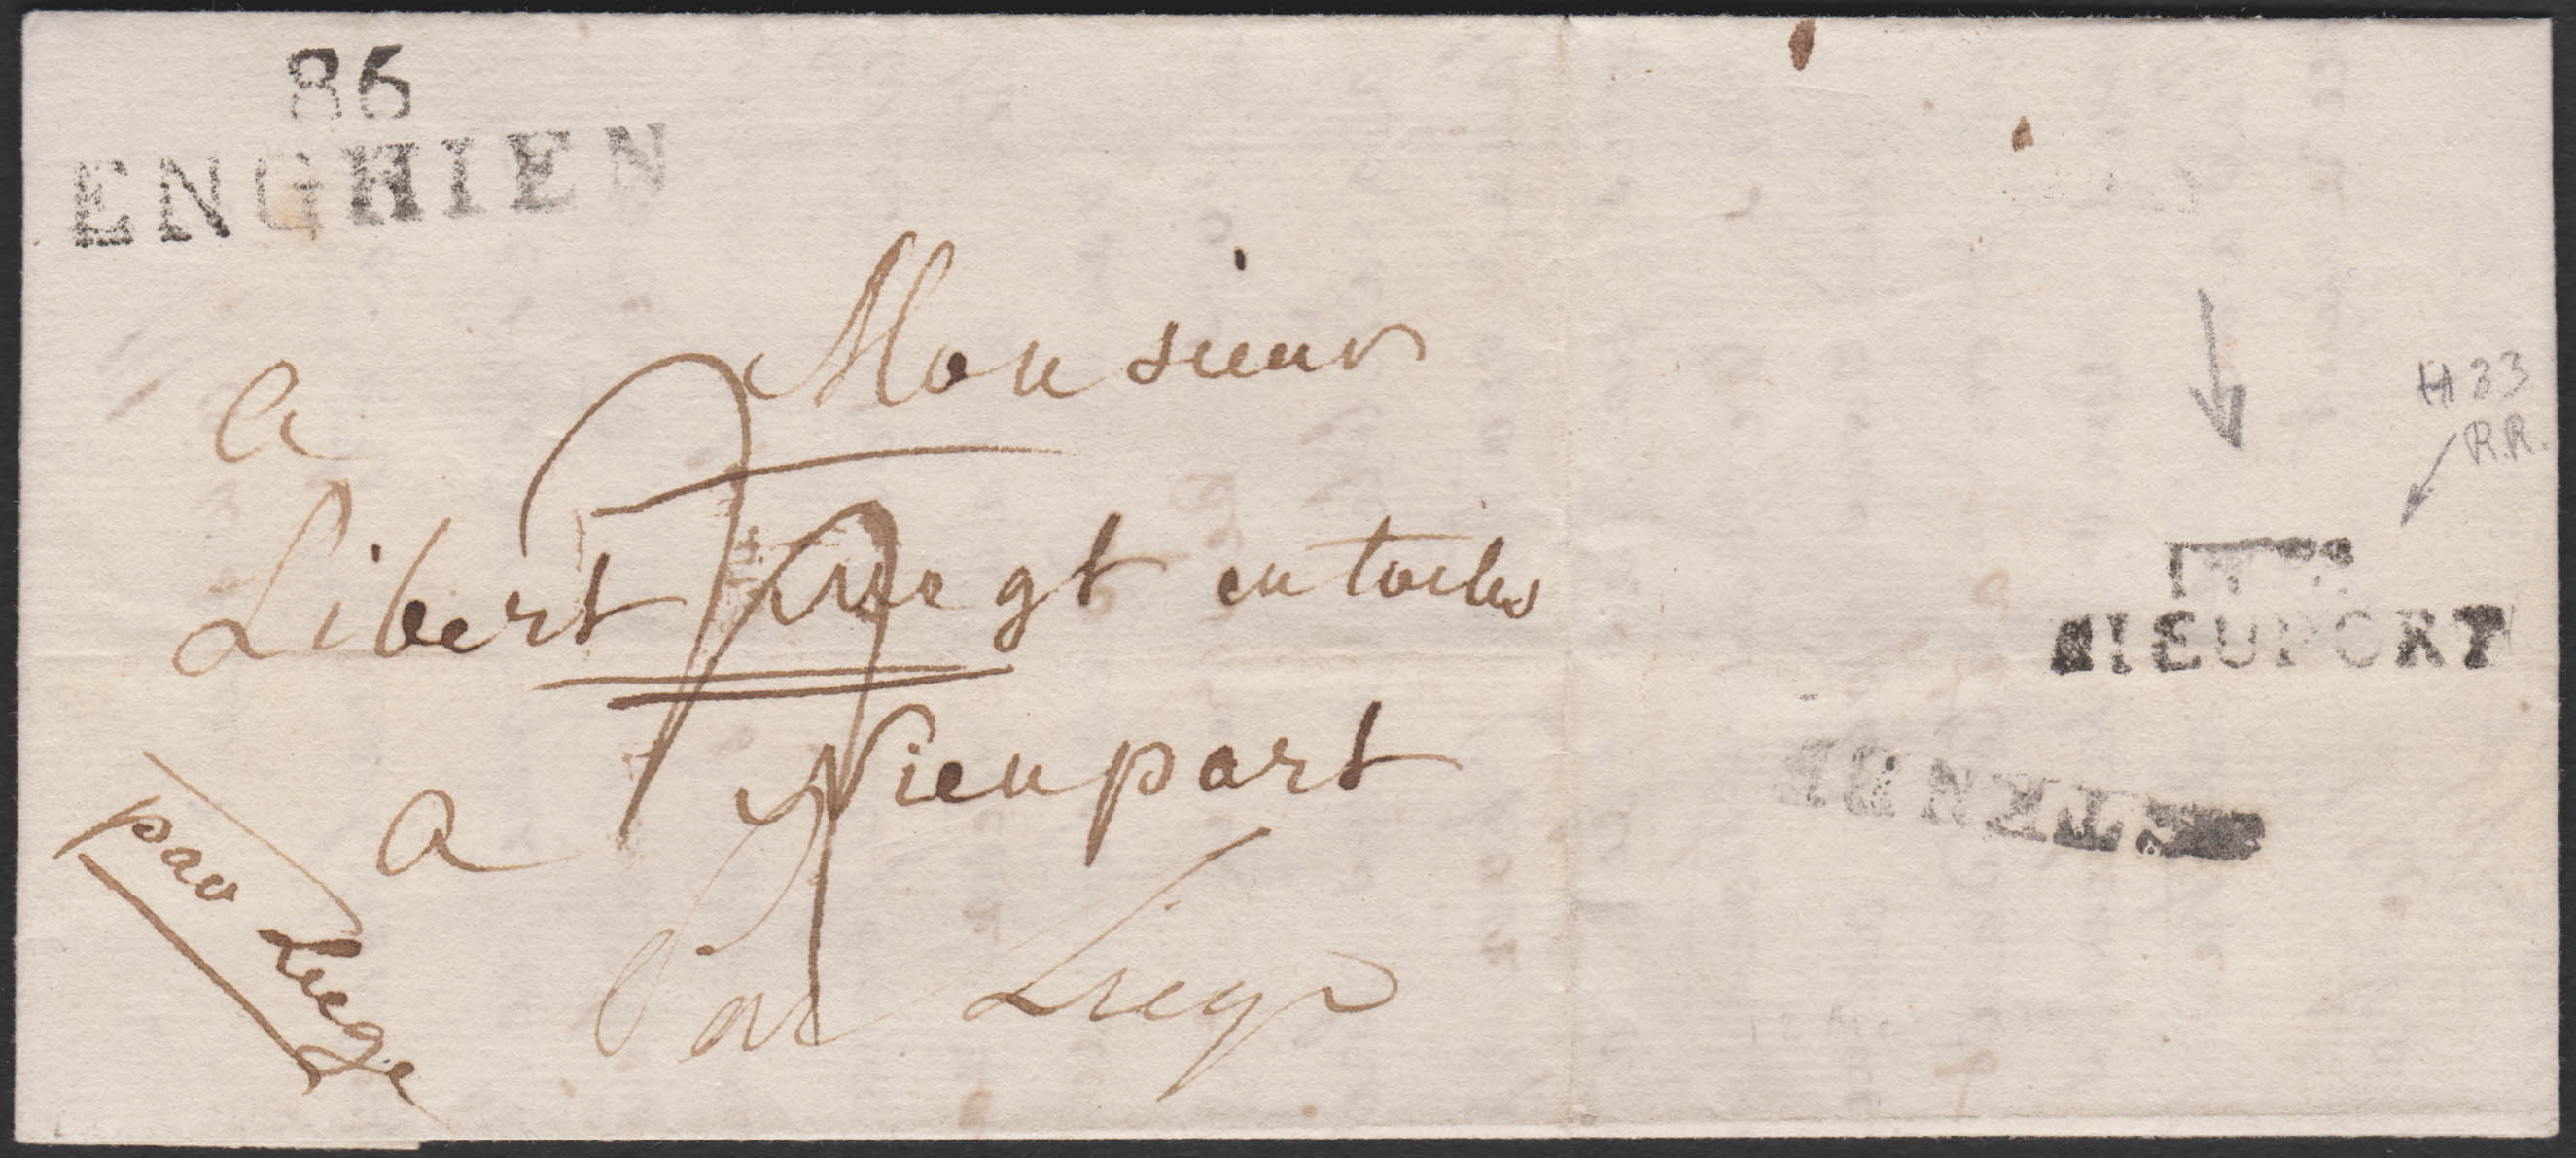 86
ENGHIEN
Monsieur
a
Libert negt en toiles
a Nieuport
Par Liege
par Liege
H 33
R.R.
NIEUPORT